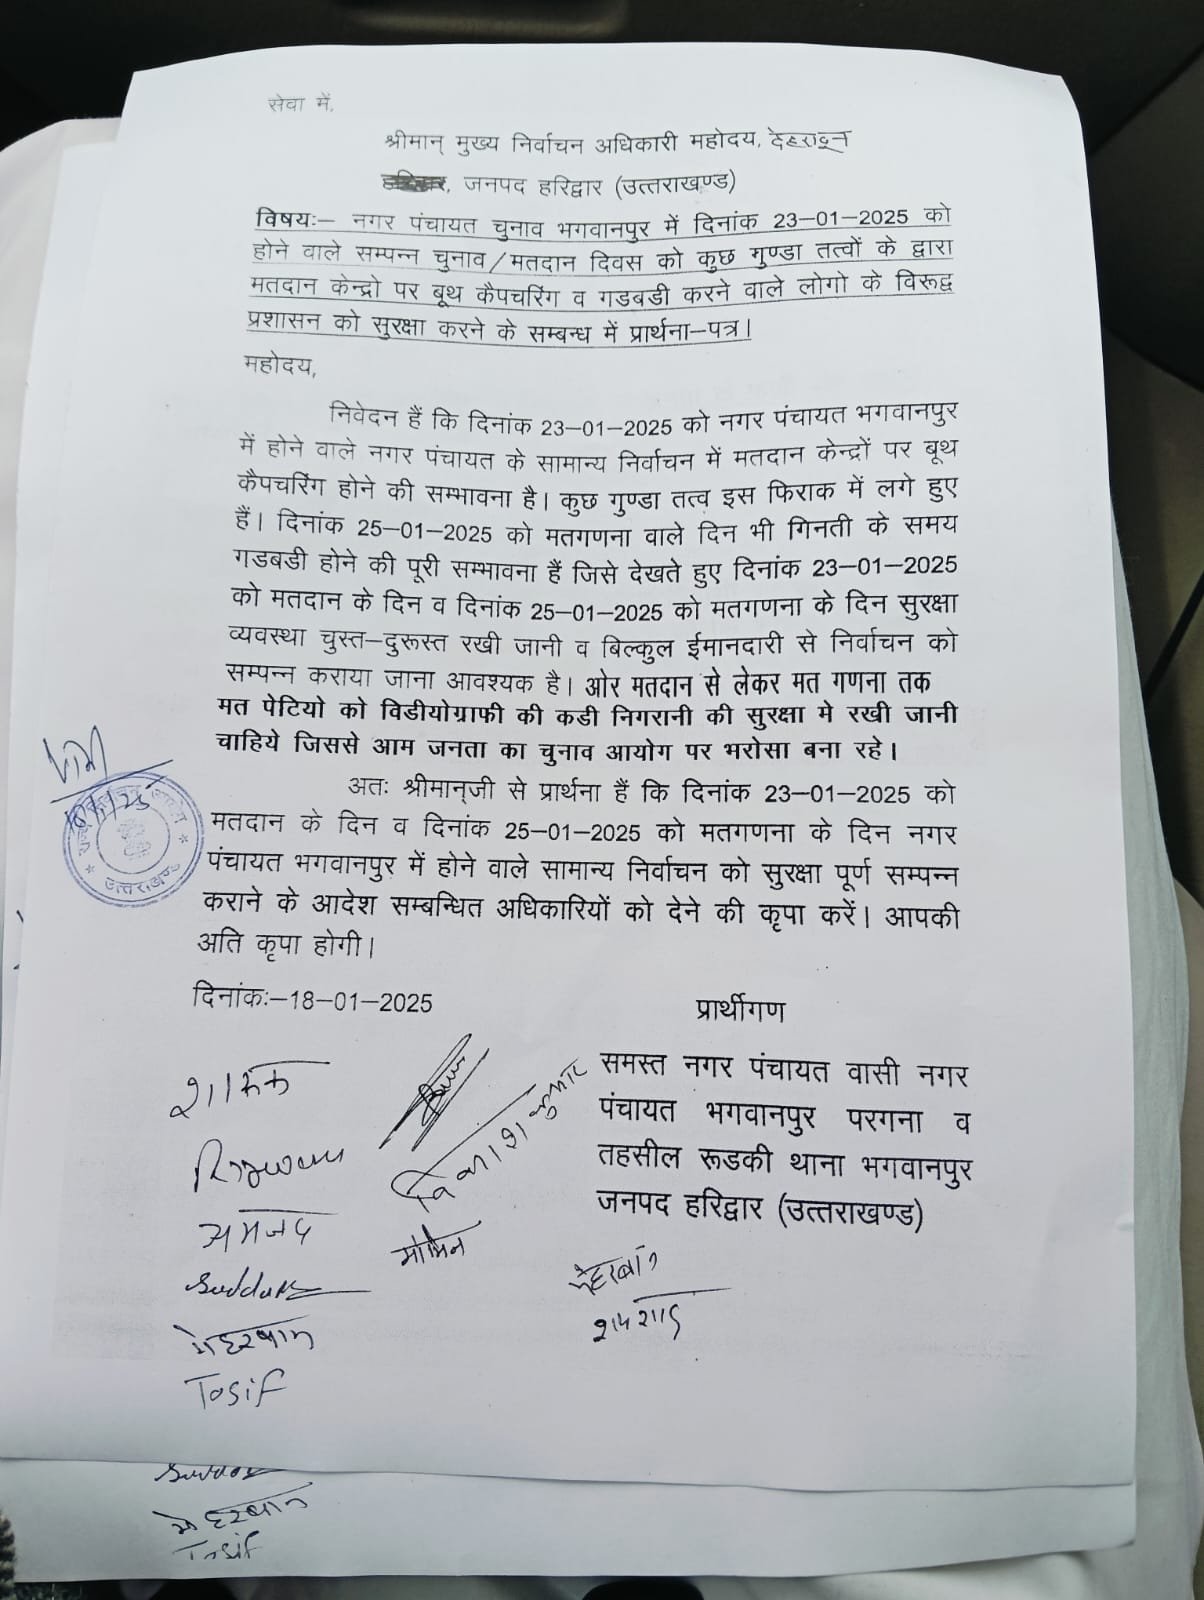 सेवा में,
श्रीमान् मुख्य निर्वाचन अधिकारी महोदय, देहरादून
हरिद्वार, जनपद हरिद्वार (उत्तराखण्ड)
विषयः– नगर पंचायत चुनाव भगवानपुर में दिनांक 23–01–2025 को
होने वाले सम्पन्न चुनाव/मतदान दिवस को कुछ गुण्डा तत्वों के द्वारा
मतदान केन्द्रो पर बूथ कैपचरिंग व गडबडी करने वाले लोगो के विरूद्व
प्रशासन को सुरक्षा करने के सम्बन्ध में प्रार्थना–पत्र।
महोदय,
निवेदन हैं कि दिनांक 23–01–2025 को नगर पंचायत भगवानपुर
में होने वाले नगर पंचायत के सामान्य निर्वाचन में मतदान केन्द्रों पर बूथ
कैपचरिंग होने की सम्भावना है। कुछ गुण्डा तत्व इस फिराक में लगे हुए
हैं। दिनांक 25–01–2025 को मतगणना वाले दिन भी गिनती के समय
गडबडी होने की पूरी सम्भावना हैं जिसे देखते हुए दिनांक 23–01–2025
को मतदान के दिन व दिनांक 25–01–2025 को मतगणना के दिन सुरक्षा
व्यवस्था चुस्त–दुरूस्त रखी जानी व बिल्कुल ईमानदारी से निर्वाचन को
सम्पन्न कराया जाना आवश्यक है। ओर मतदान से लेकर मत गणना तक
मत पेटियो को विडीयोग्राफी की कडी निगरानी की सुरक्षा मे रखी जानी
चाहिये जिससे आम जनता का चुनाव आयोग पर भरोसा बना रहे।
अतः श्रीमान्जी से प्रार्थना हैं कि दिनांक 23–01–2025 को
मतदान के दिन व दिनांक 25–01–2025 को मतगणना के दिन नगर
पंचायत भगवानपुर में होने वाले सामान्य निर्वाचन को सुरक्षा पूर्ण सम्पन्न
कराने के आदेश सम्बन्धित अधिकारियों को देने की कृपा करें। आपकी
अति कृपा होगी।
उत्तराखण्ड
दिनांकः–18–01–2025
प्रार्थीगण
समस्त नगर पंचायत वासी नगर
पंचायत भगवानपुर परगना व
तहसील रूडकी थाना भगवानपुर
जनपद हरिद्वार (उत्तराखण्ड)
विकाश कुमार
अमजद
मोमिन
मेहरबान
Tosif
मेहरबान
Tosif